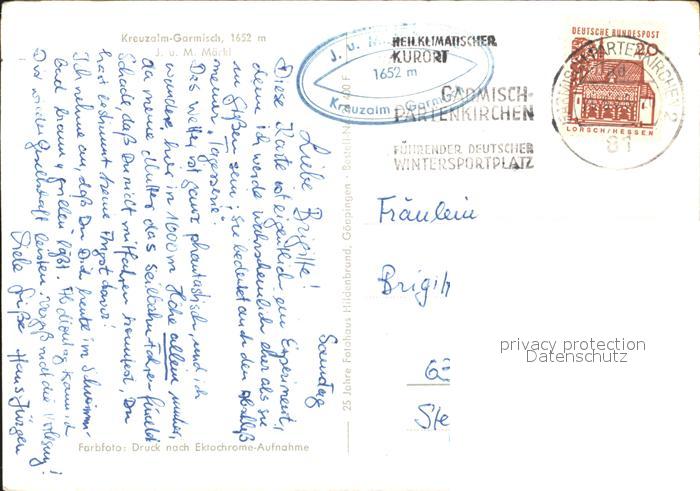 Kreuzalm-Garmisch, 1652 m
J. u. M. Märkl
Sonntag
Liebe Brigitte!
Diese Karte ist eigentlich ein Experiment,
denn ich werde wahrscheinlich eher als sie
in Gießen sein; sie bedeutet auch den Abschluß
meiner "Tagesserie".
Das Wetter ist ganz phantastisch, und ich
wandere hier in 1600 m Höhe allein umher,
da meine Mutter das Seilbahn-fahren fürchtet
Schade, daß Du nicht mitfahren konntest, Du
hast bestimmt keine Angst davor!
Ich nehme an, daß Du Dich heute im Schwimm-
bad braun grillen läßt. Ab Dienstag kann ich
Dir wieder Gesellschaft leisten, vergiß nicht die
Viele Grüße Hans-Jürgen
Farbfoto: Druck nach Ektochrome-Aufnahme
25 Jahre Fotohaus Hildenbrand, Göppingen · Bestell-N
J. u.
1652 m
Kreuzalm - Garm
HEILKLIMATISCHER
KURORT
GARMISCH-
PARTENKIRCHEN
FÜHRENDER DEUTSCHER
WINTERSPORTPLATZ
DEUTSCHE BUNDESPOST
20
LORSCH/HESSEN
GARMISCH-PARTENKIRCHEN 2
81
Fräulein
Brigit
Ste
privacy protection
Datenschutz